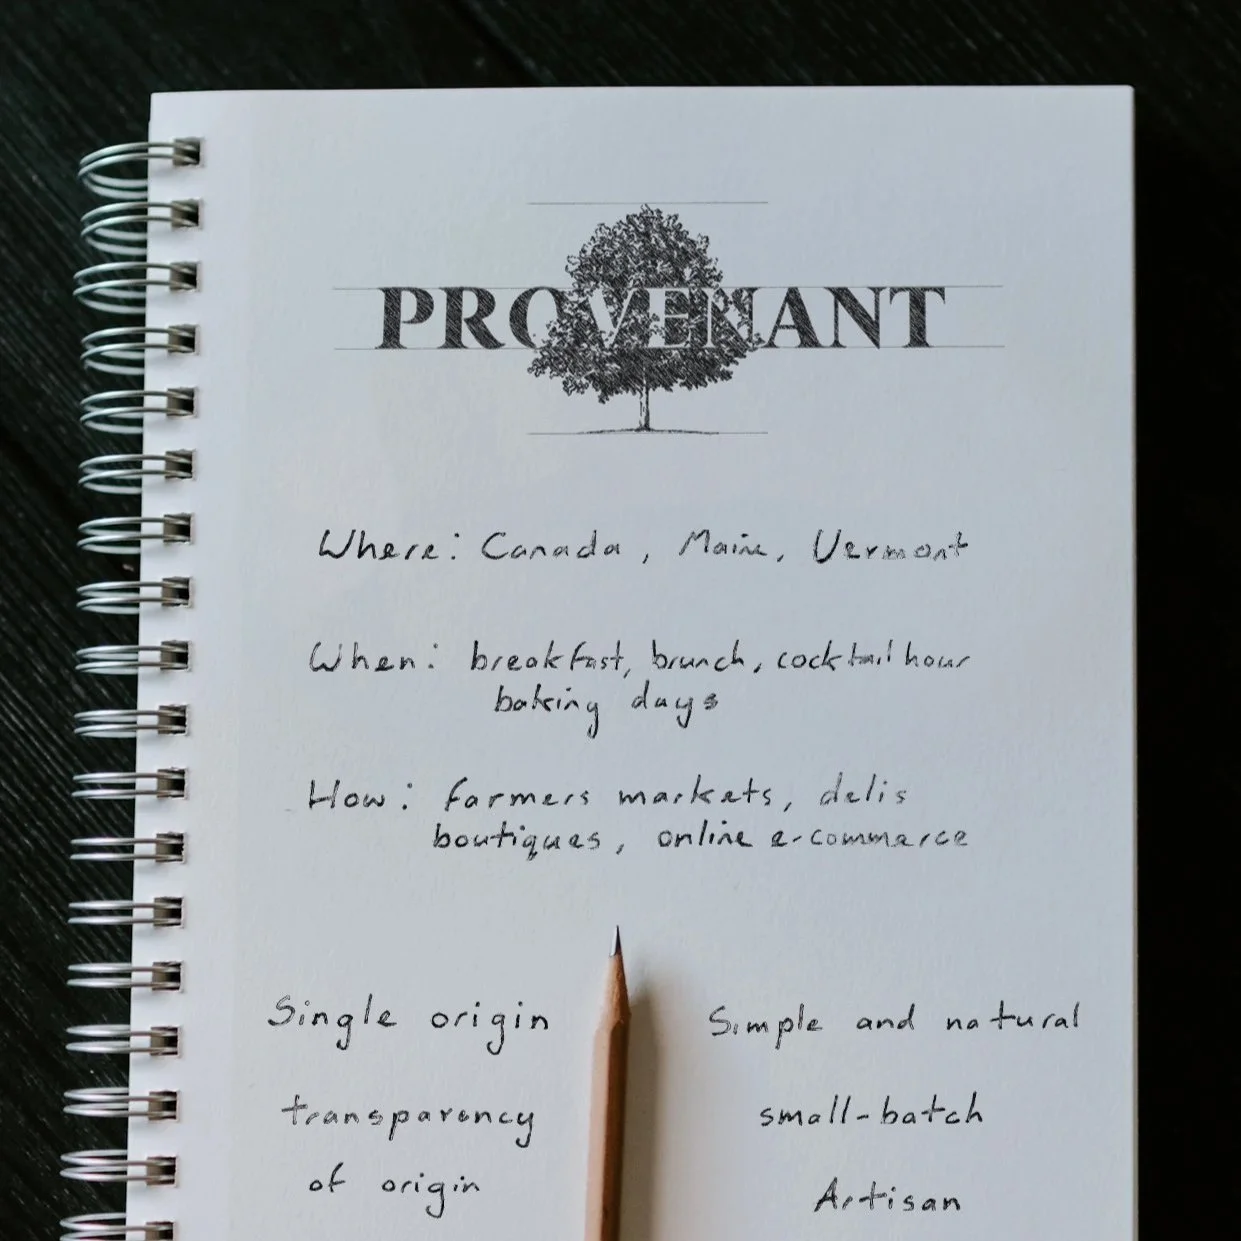 PROVENANT
Where: Canada, Maine, Vermont
When: breakfast, brunch, cocktail hour
baking days
How: farmers markets, delis
boutiques, online e-commerce
Single origin
transparency
of origin
Simple and natural
small-batch
Artisan